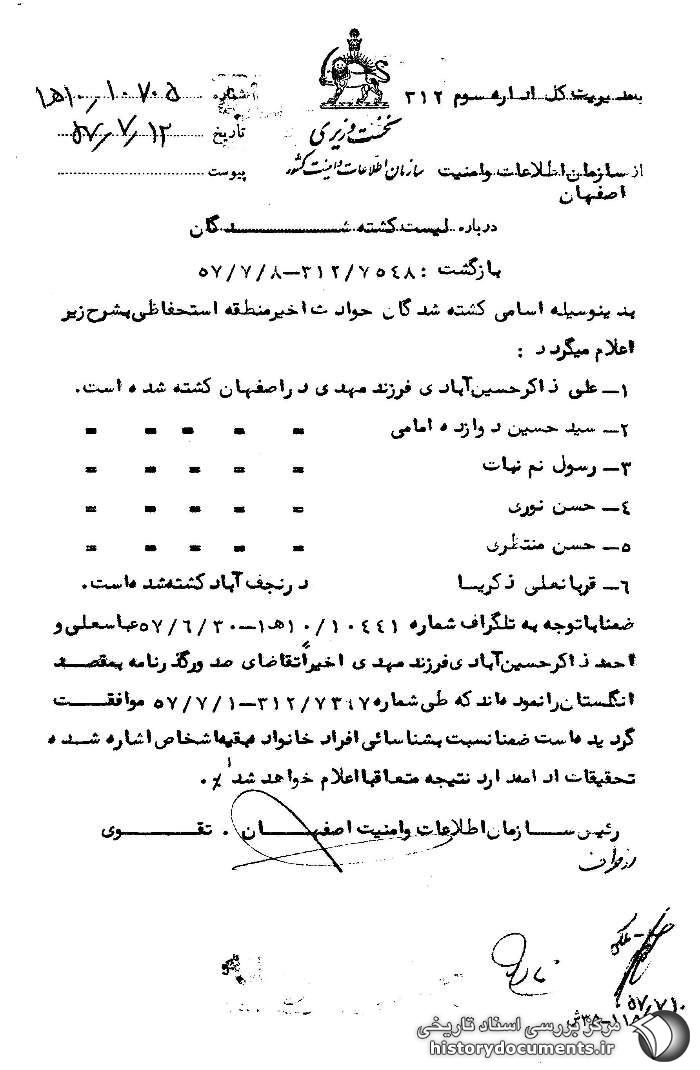 بمدیریت کل اداره سوم ۳۱۲
شماره ۱۰۷۰۵/۱۰ه‍۱
نخست وزیری
تاریخ ۵۷/۷/۱۲
از سازمان اطلاعات وامنیت اصفهان
سازمان اطلاعات و امنیت کشور
پیوست
درباره لیست کشته شدگان
بازگشت : ۳۱۲/۷۵٤۸-۵۷/۷/۸
بدینوسیله اسامی کشته شدگان حوادث اخیرمنطقه استحفاظی بشرح زیر
اعلام میگردد :
۱- علی ذاکرحسین‌آبادی فرزند مهدی دراصفهان کشته شده است.
۲- سید حسین دوازده امامی = = = = =
۳- رسول نم نبات = = = = =
٤- حسن نوری = = = = =
۵- حسن منتظری = = = = =
۶- قربانعلی ذکریا درنجف آباد کشته‌شده‌است.
ضمنا باتوجه به تلگراف شماره ۱۰٤٤۱/۱۰ه‍۱-۵۷/۶/۳۰ عباسعلی و
احمد ذاکرحسین‌آبادی فرزند مهدی اخیراً تقاضای صدورگذرنامه بمقصد
انگلستان رانموده‌اند که طی شماره ۳۱۲/-۵۷/۷/۱ موافقت
گردیده‌است ضمنا نسبت بشناسائی افراد خانواده بقیه اشخاص اشاره شده
تحقیقات ادامه دارد نتیجه متعاقبا اعلام خواهد شد./.
رئیس سازمان اطلاعات وامنیت اصفهان . تقوی
۵۷/۷/۱۰
مرکز بررسی اسناد تاریخی
historydocuments.ir